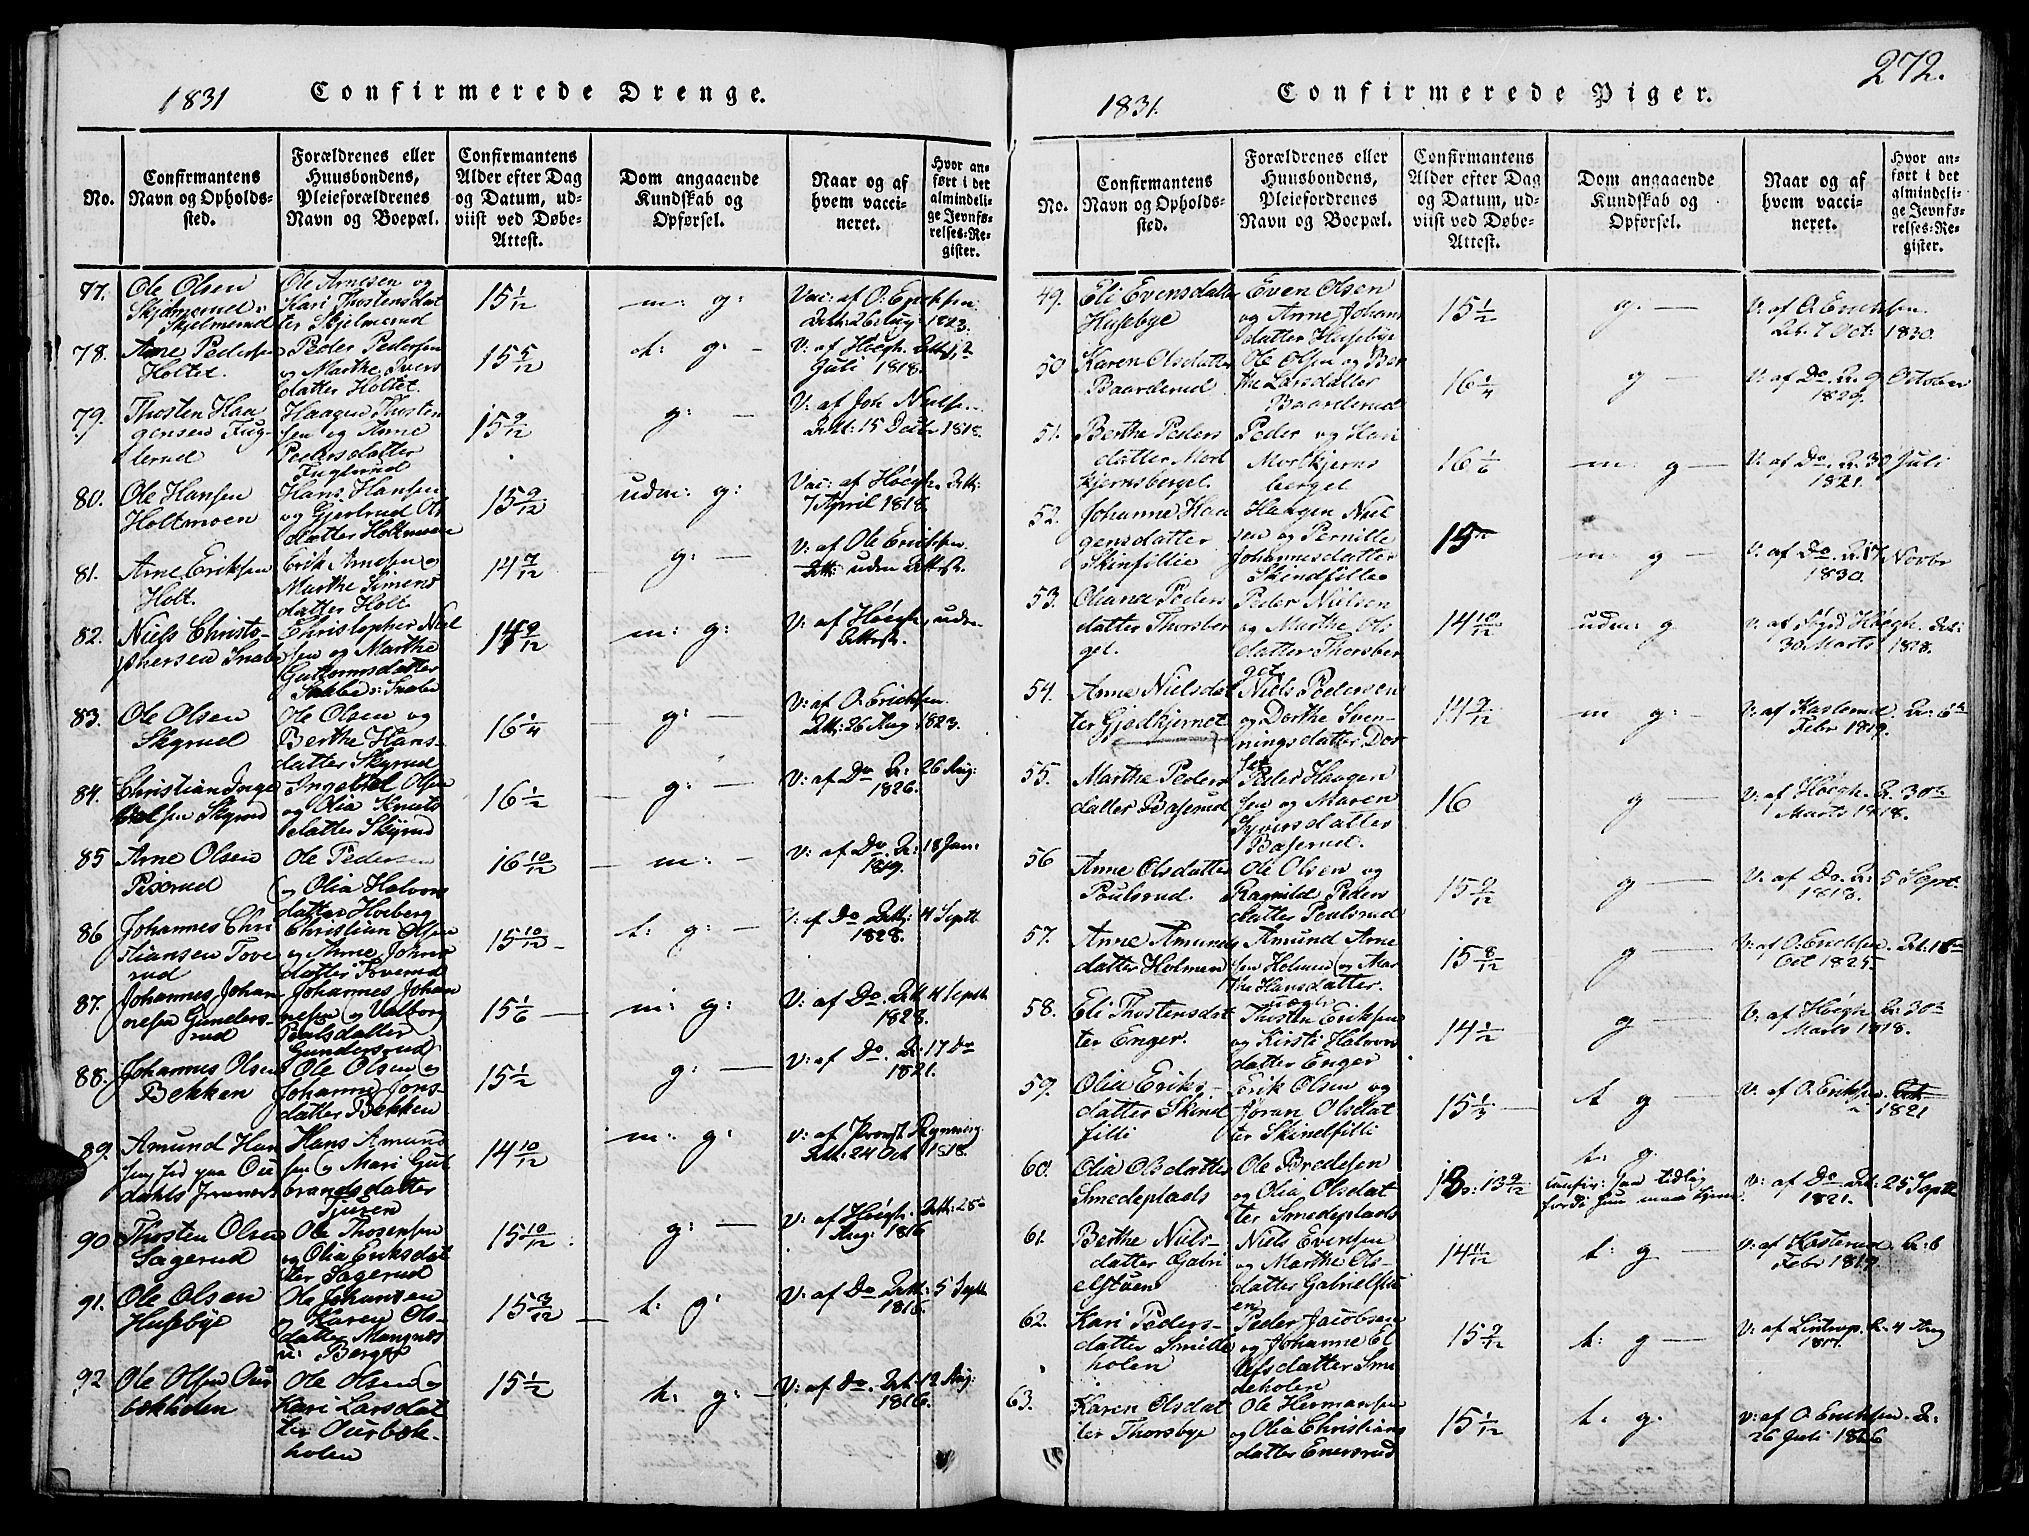 1831 Confirmerede Drenge.
No.
Confirmantens
Navn og Opholds-
sted.
Forældrenes eller
Huusbondens,
Pleieforældrenes
Navn og Boepæl.
Confirmantens
Alder efter Dag
og Datum, ud-
viist ved Døbe-
Attest.
Dom angaaende
Kundskab og
Opførsel.
Naar og af
hvem vacci-
neret.
Hvor an-
ført i det
almindeli-
ge Jevnfø-
relses-Re-
gister.
77. Ole Olsen
Skjelmerud
Ole Arnesen og
Kari Thostensdat
ter Skjelmerud
15 1/12
m: g:
Vac: af O: Eriksen
Att: 26 Aug: 1823.
78. Arne Pedersen
Holtet.
Peder Pedersen
og Marthe Ivers
datter Holtet.
15 5/12
t: g: -
V: af Høegh. Att: 12
Juli 1818.
79. Thosten Haa
gensen Fug-
lerud
Haagen Thosten
sen og Anne
Pedersdatter
Fuglerud
15 9/12
g: -
V: af Joh Nielsen
Att: 15 Decbr 1818.
80. Ole Hansen
Holtmoen
Hans Hansen
og Gjertrud Ols
datter Holtmoen
15 9/12
udm: g:
Vac: af Høegh. Att:
7 April 1818.
81. Arne Eriksen
Holt.
Erik Arnesen og
Marthe Simens
datter Holt.
14 7/12
g: -
V: af Ole Erichsen
uden Attest.
82. Niels Christo-
phersen Snabe
Christopher Niel
sen og Marthe
Guttormsdatter
14 9/12
m: g:
V: af Høegh, uden
Attest.
83. Ole Olsen
Skyrud
Ole Olsen og
Berthe Hans-
datter Skyrud
16 1/4
g: -
V: af O. Erichsen
Att: 26 Aug 1823.
84. Christian Inge
brelsen Skyrud
Ingebrel Olsen
og Olia Knuts
datter Skyrud
16 1/12
g: -
V: af Do A: 26 Aug:
1826.
85 Arne Olsen
Pixrud
Ole Pedersen
og Olia Halvors
datter Hoeberg
16 10/12
m: -
V: af Do A: 18 Jan:
1819.
86 Johannes Chri
stiansen Tove
rud
Christian Olsen
og Anne Johns
datter Toverud
15 10/12
t: g: -
V: af Do Att: 4 Septb
1828.
87. Johannes Johan
nesen Gunders-
rud
Johannes Johan
nesen og Valborg
Paulsdatter
Gundersrud
15 1/6
m: g:
V: af Do Att 4 Septb
1823.
88. Johannes Olsen
Bekken
Ole Olsen og
Johanne Jons-
datter Bekken
15 1/12
g: -
V: af Do. A: 17 Do
1821.
89. Amund Han
sen
Hans Amund
sen og Mari Gul
brandsdatter
Tjuren
14 10/12
m: g:
V: af Provst Rynning
Att: 24 Oct 1818.
90 Thosten Olsen
Sagerud
Ole Thostensen
og Olia Eriksdat
ter Sagerud
15 10/12
g: -
V: af Høegh. Att: 25de
Aug: 1816
91. Ole Olsen
Husebye
Ole Johansen
Karen Ols-
datter Mangnes
u: Berger
15 3/12
t: g:
V: af Do Att: 5 Septb
1816.
92 Ole Olsen Our
bekholen
Ole Olsen og
Kari Larsdat
ter Ourbek-
holen
15 1/12
t: g: -
V: af Do. Att: 12 Aug:
1816.
272.
1831. Confirmerede Piger.
No.
Confirmantens
Navn og Opholds-
sted.
Forældrenes eller
Huusbondens,
Pleiefordrenes
Navn og Boepæl.
Confirmantens
Alder efter Dag
og Datum, ud-
viist ved Døbe-
Attest.
Dom angaaende
Kundskab og
Opførsel.
Naar og af
hvem vacci-
neret.
Hvor an-
ført i det
almindeli-
ge Jevnfø-
relses-Re-
gister.
49. Eli Evensdatter
Husebye
Even Olsen
og Anne Johans
datter Husebye
15 1/12
g: -
V: af O. Erichsen
At. 7 Oct: 1830.
50 Karen Olsdatter
Baarderud
Ole Olsen og Ber
the Larsdatter
Baarderud
16 1/4
g -
V: af Do. A. 9 October
1829.
51. Berthe Peders
datter Mort
kjernsberget.
Peder og Kari
Mortkjerns
berget
16 1/6
m: g -
V: af Do. A. 30 Juli
1821.
52. Johanne Haa
gensdatter
Skinfillie
Haagen Niel
sen og Pernille
Johannesdatter
Skindfille
15
m: g -
V: af Do. A. 17 Novbr
1830.
53. Oliana Peders
datter Thorsber
get.
Peder Nielsen
og Marthe Ols
datter Thorsber
get.
14 10/12
udm: g
V: af Sgd Høegh. Att:
30 Marts 1828.
54. Anne Nielsdat
ter Gjodkjernet
Niels Pedersen
og Dorthe Sven-
ningsdatter Dor
set
14 9/12
m g: -
V: af Kasterud. A: 6te
Febr 1819.
55. Marthe Peders
datter Baserud
Peder Haagen
sen og Maren
Syversdatter
Baserud.
16
g -
V: af Høegh A. 30te
Marts 1818.
56 Anne Olsdatter
Poulsrud.
Ole Olsen og
Ragnild Peders
datter Poulsrud
15 9/12
g -
V: af Do. A: 5 Sept.
1813.
57. Anne Amunds
datter Holmen
Amund Arne
sen Holmen og Mar
the Hansdatter.
15 8/12
g -
V: af O. Erichsen. At. 18de
Oct 1825
58. Eli Thostensdat
ter Enger.
Thosten Eriksen
og Kirsti Halvors
datter Enger
14 1/12
g -
V: af Høegh A: 30te
Marts 1818.
59. Olia Eriks-
datter Skind
filli
Erik Olsen og
Jøran Olsdat
ter Skindfilli
15 1/3
t g -
V: af O. Eriksen
1821
60. Olia Olsdatter
Smedeplads
Ole Bredesen
og Olia Olsdat
ter Smedeplads
13 9/12
t: g.
V: af Do Att: 25 Septb
1821.
61. Berthe Niels-
datter Gabri
elstuen
Niels Evensen
og Marthe Ols-
datter Gabrielstu
en
14 11/12
t: g -
V: af Kasterud. A: 6
Febr 1819.
62. Kari Peders-
datter Smitte
holen
Peder Jacobsen
og Johanne El
lefsdatter Sme
deholen
15 9/12
t: g -
V: af Lintrup. A: 4 Aug
63. Karen Olsdat
ter Thorsbye
Ole Hermansen
og Olia Christians
datter Enersrud
15 1/12
t: g.
V: af O. Erichsen. A:
26 Juli 1826